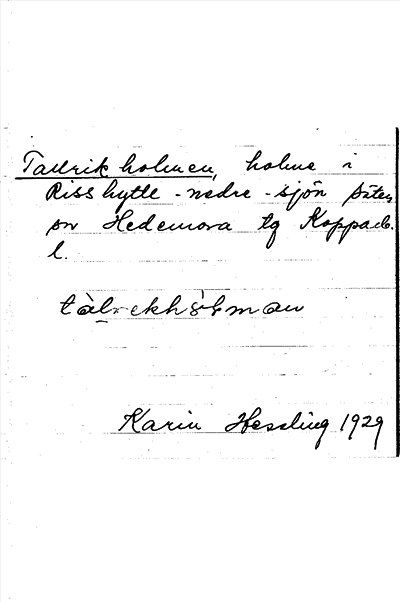 Tallrikholmen, holme i
Risshytte-nedre-sjön Säter
sn Hedemora tg Kopparb.
l.
Karin Hessling 1929